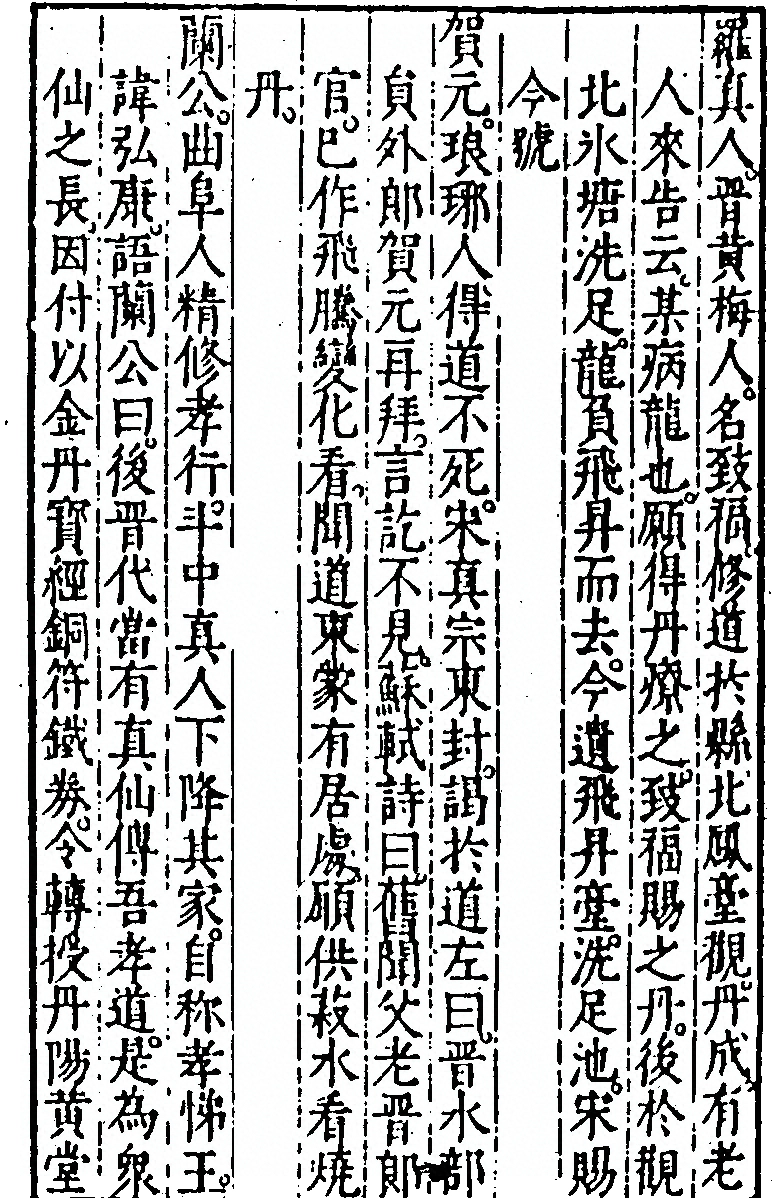 羅真人。晋黄梅人。名致福。修道於縣北鳳臺觀。丹成。有老
人來告云。某病龍也。願得丹療之。致福賜之丹。後於觀
北氷塘洗足。龍負飛昇而去。今遺飛昇臺。洗足池。宋賜
今號
賀元。琅琊人得道不死。宋真宗東封。謁於道左曰。晋水部
員外郎賀元再拜。言訖不見。蘇軾詩曰。舊聞父老晋郎
官。已作飛騰變化看。聞道東蒙有居處。願供薪水看燒
丹。
蘭公。曲阜人精修孝行。斗中真人下降其家。自称孝悌王。
諱弘康。語蘭公曰。後晋代當有真仙傳吾孝道。是為衆
仙之長。因付以金丹寶經銅符鐵券。令轉授丹陽黄堂